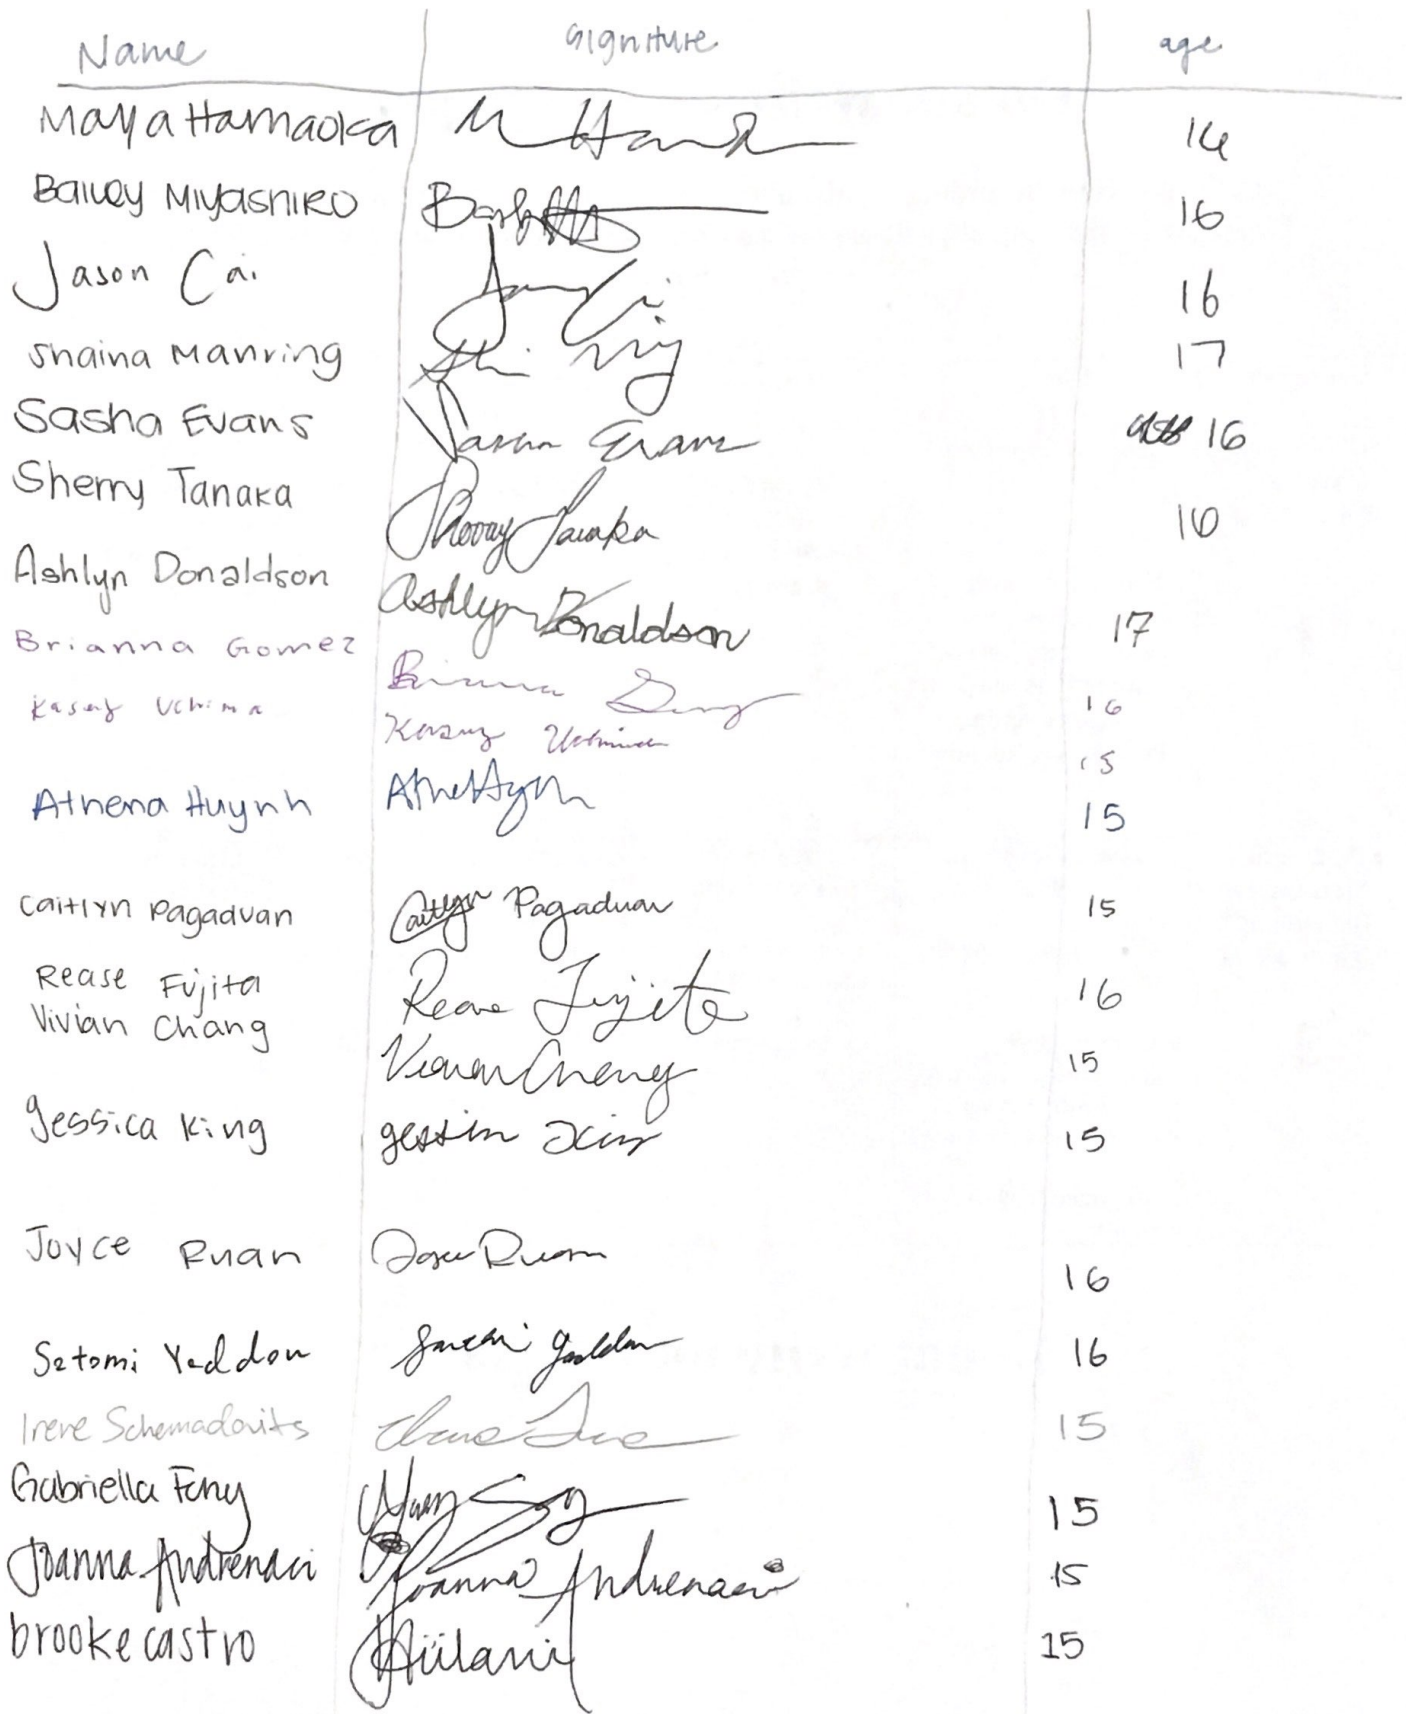 Name Signiture age
Maya Hamaoka M Ham 16
Bailey Miyashiro 16
Jason Cai 16
Shaina Manring 17
Sasha Evans Sasha Evans 16
Sherry Tanaka Sherry Tanaka 16
Ashlyn Donaldson Ashlyn Donaldson 17
Brianna Gomez Brianna 16
Kasey Uchima Kasey Uchima 15
Athena Huynh 15
Caitlyn Pagaduan Caitlyn Pagaduan 15
Rease Fujita Rease Fujita 16
Vivian Chang Vivian Chang 15
Jessica King 15
Joyce Ruan Joyce Ruan 16
Satomi Yaddon 16
Irene Schemadovits 15
Gabriella Fong 15
Joanna Andrenaci Joanna Andrenaci 15
brooke castro 15